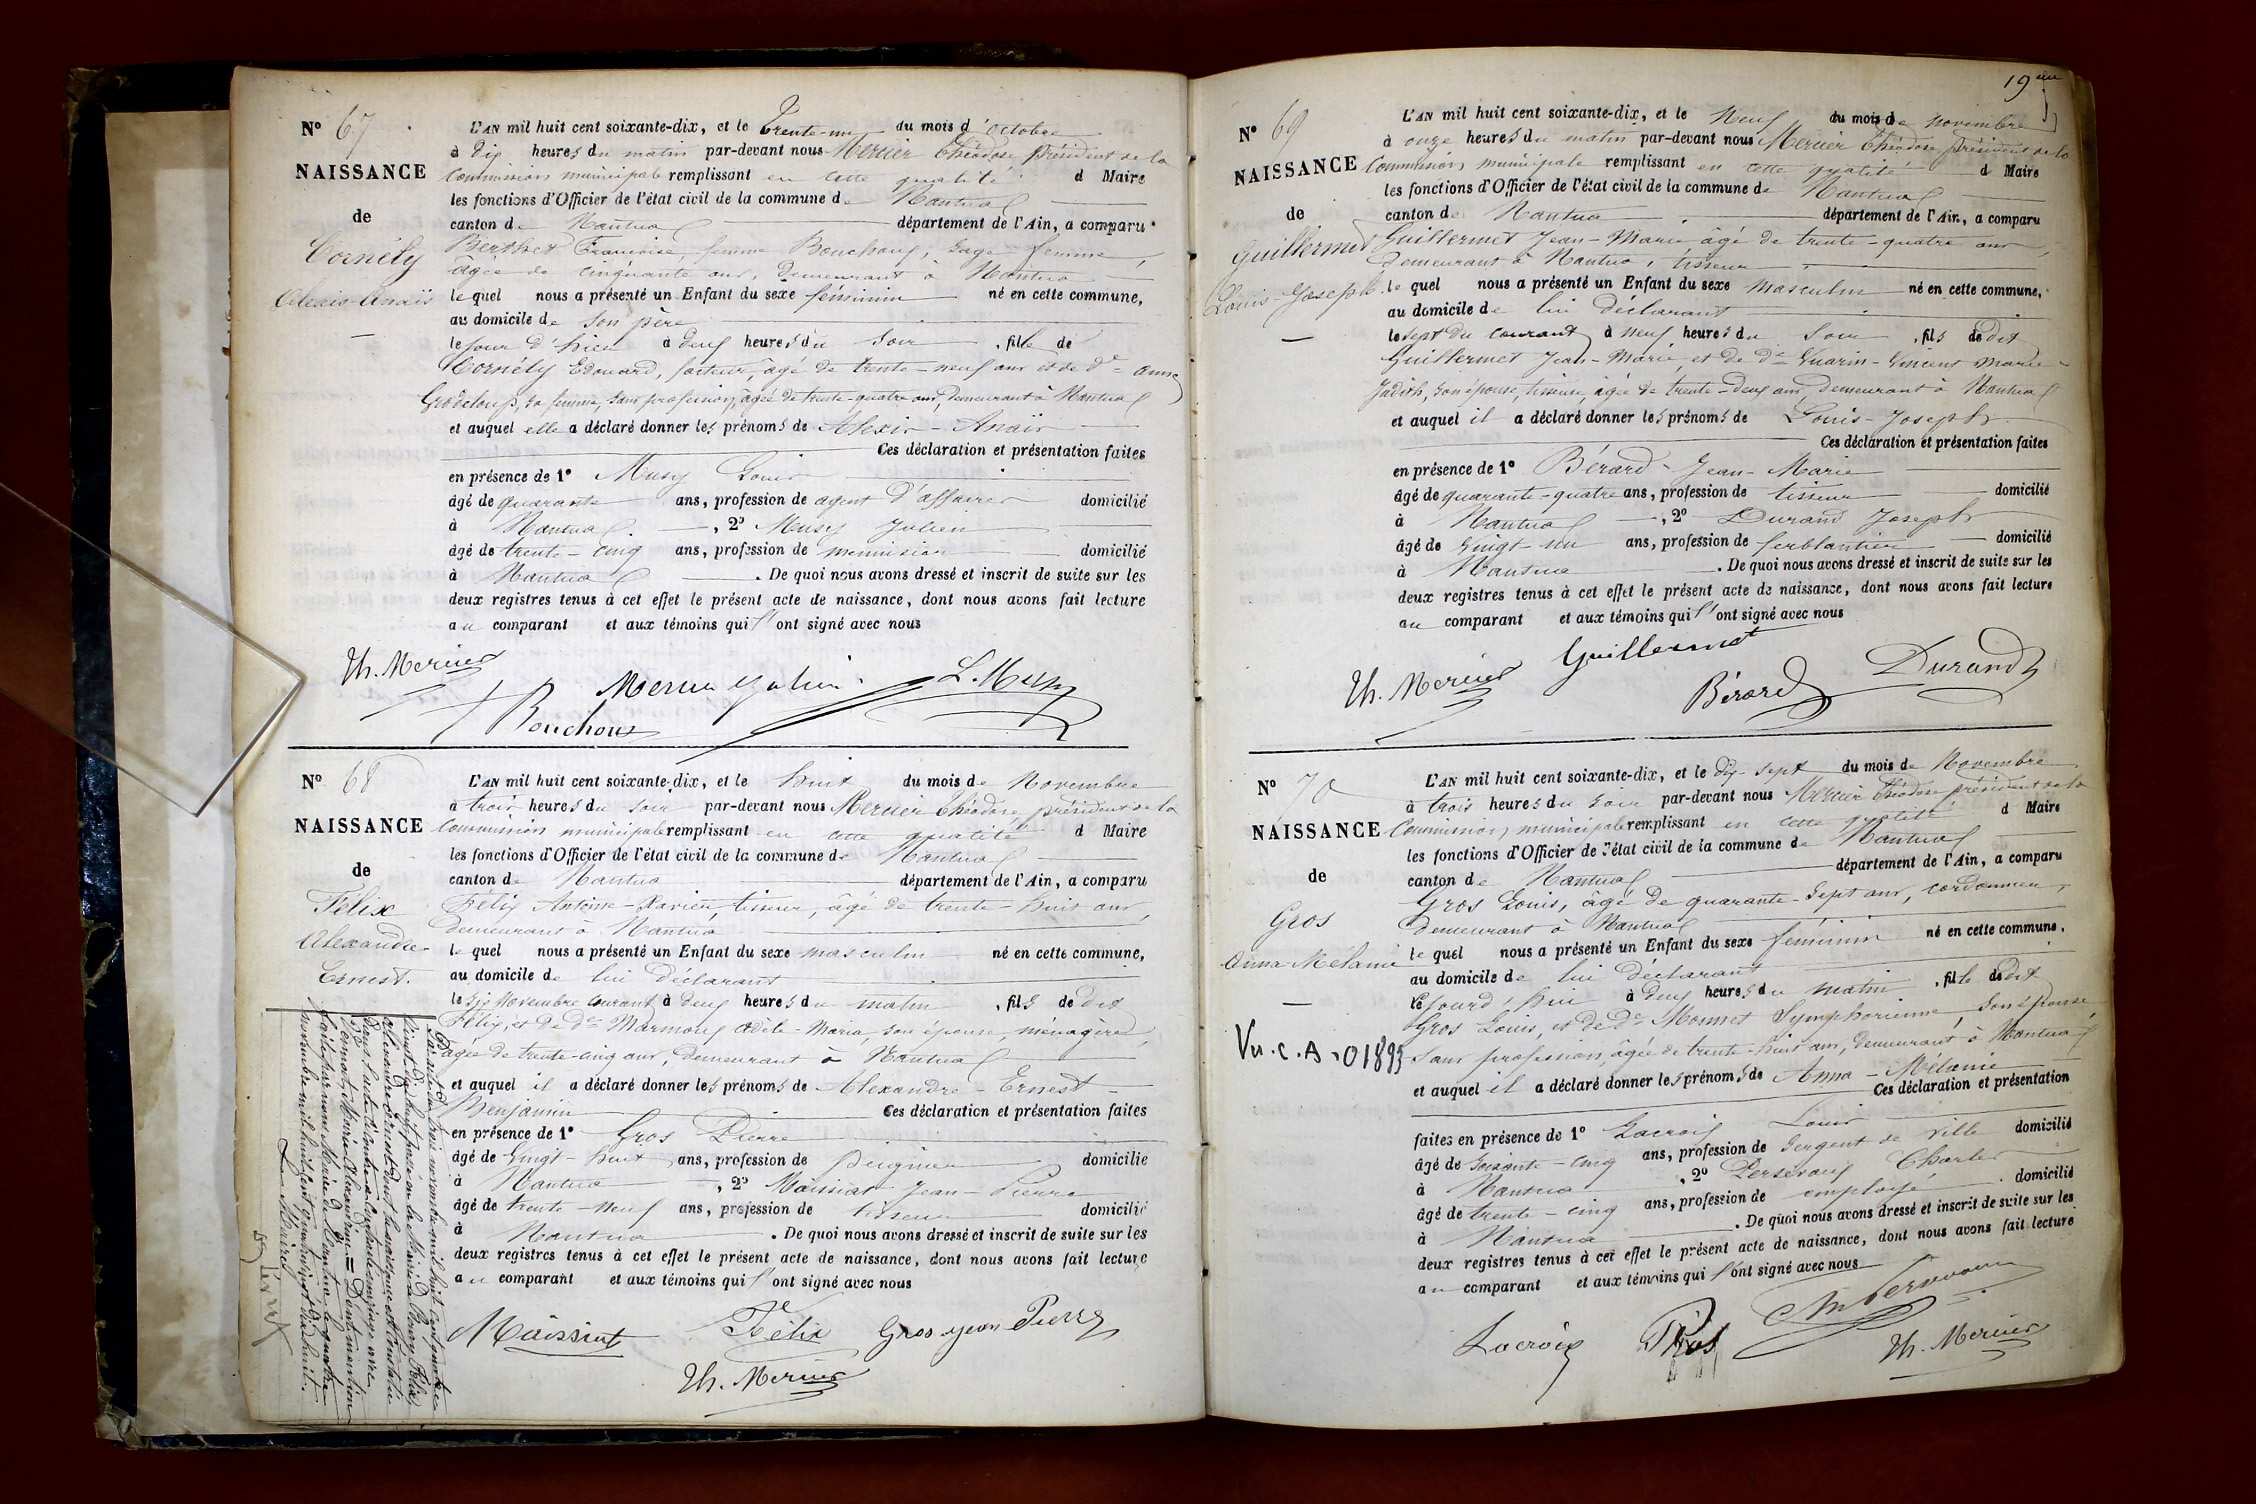 N° 67
NAISSANCE
de
Cornély
Alexis-Anaïs
L'AN mil huit cent soixante-dix, et le Trente-un du mois d'octobre
à dix heures du matin par-devant nous Mercier Théodose président de la
Commission municipale remplissant en cette qualité d Maire
les fonctions d'Officier de l'état civil de la commune de Nantua
canton de Nantua département de l'Ain, a comparu
Berthet Françoise, femme Bouchoux, sage femme,
âgée de cinquante ans, demeurant à Nantua
le quel nous a présenté un Enfant du sexe féminin né en cette commune,
au domicile de son père
le jour d'hier à deux heures du soir, fille de
Cornély Edouard, facteur, âgé de trente-neuf ans et de De Anne
sa femme, sans profession, âgée de trente-quatre ans, demeurant à Nantua
et auquel elle a déclaré donner les prénoms de Alexis-Anaïs
Ces déclaration et présentation faites
en présence de 1° Musy Louis
âgé de quarante ans, profession de agent d'affaires domicilié
à Nantua, 2° Musy Julien
âgé de trente-cinq ans, profession de menuisier domicilié
à Nantua. De quoi nous avons dressé et inscrit de suite sur les
deux registres tenus à cet effet le présent acte de naissance, dont nous avons fait lecture
au comparant et aux témoins qui l'ont signé avec nous
Th. Mercier
L. Musy
Bouchoux
N° 68
NAISSANCE
de
Félix
Alexandre-
Ernest.
L'AN mil huit cent soixante-dix, et le huit du mois de Novembre
à trois heures du soir par-devant nous Mercier Théodose président de la
Commission municipale remplissant en cette qualité d Maire
les fonctions d'Officier de l'état civil de la commune de Nantua
canton de Nantua département de l'Ain, a comparu
Félix Antoine-Xavier, tisseur, âgé de trente-huit ans,
demeurant à Nantua
le quel nous a présenté un Enfant du sexe masculin né en cette commune,
au domicile de lui déclarant
le six Novembre courant à deux heures du matin, fils de dit
Félix, et de De Marmoux Adèle-Maria, son épouse, ménagère,
âgée de trente-cinq ans, demeurant à Nantua
et auquel il a déclaré donner les prénoms de Alexandre-Ernest-
Benjamin Ces déclaration et présentation faites
en présence de 1° Gros Pierre
âgé de vingt-huit ans, profession de peigneur domicilié
à Nantua, 2° Maissiat Jean-Pierre
âgé de trente-neuf ans, profession de tisseur domicilié
à Nantua. De quoi nous avons dressé et inscrit de suite sur les
deux registres tenus à cet effet le présent acte de naissance, dont nous avons fait lecture
au comparant et aux témoins qui l'ont signé avec nous
Maissiat Félix Gros-jean Pierre
Th. Mercier
19
N° 69
NAISSANCE
de
Guillermet
Louis-Joseph
L'AN mil huit cent soixante-dix, et le Neuf du mois de novembre
à onze heures du matin par-devant nous Mercier Théodose président de la
Commission municipale remplissant en cette qualité d Maire
les fonctions d'Officier de l'état civil de la commune de Nantua
canton de Nantua département de l'Ain, a comparu
Guillermet Jean-Marie âgé de trente-quatre ans,
demeurant à Nantua, tisseur,
le quel nous a présenté un Enfant du sexe masculin né en cette commune,
au domicile de lui déclarant
le sept du courant à neuf heures du soir, fils de dit
Guillermet Jean-Marie, et de De Guarin-Vincent Marie-
Judith, son épouse, tisseuse, âgée de trente-deux ans, demeurant à Nantua
et auquel il a déclaré donner les prénoms de Louis-Joseph
Ces déclaration et présentation faites
en présence de 1° Bérard-Jean-Marie
âgé de quarante-quatre ans, profession de tisseur domicilié
à Nantua, 2° Durand Joseph
âgé de vingt-un ans, profession de ferblantier domicilié
à Nantua. De quoi nous avons dressé et inscrit de suite sur les
deux registres tenus à cet effet le présent acte de naissance, dont nous avons fait lecture
au comparant et aux témoins qui l'ont signé avec nous
Guillermet
Th. Mercier Bérard Durand
N° 70
NAISSANCE
de
Gros
Anna-Mélanie
L'AN mil huit cent soixante-dix, et le dix-sept du mois de Novembre
à trois heures du soir par-devant nous Mercier Théodose président de la
Commission municipale remplissant en cette qualité d Maire
les fonctions d'Officier de l'état civil de la commune de Nantua
canton de Nantua département de l'Ain, a comparu
Gros Louis, âgé de quarante-sept ans, cordonnier,
demeurant à Nantua
le quel nous a présenté un Enfant du sexe féminin né en cette commune,
au domicile de lui déclarant
le jourd'hui à deux heures du matin, fille de dit
Gros Louis, et de De Monnet Symphorienne, son épouse
sans profession, âgée de trente-huit ans, demeurant à Nantua
et auquel il a déclaré donner les prénoms de Anna-Mélanie
Ces déclaration et présentation
faites en présence de 1° Lacroix Louis
âgé de soixante-cinq ans, profession de sergent de ville domicilié
à Nantua, 2° Charles
âgé de trente-cinq ans, profession de employé domicilié
à Nantua. De quoi nous avons dressé et inscrit de suite sur les
deux registres tenus à cet effet le présent acte de naissance, dont nous avons fait lecture
au comparant et aux témoins qui l'ont signé avec nous
Lacroix Gros
Th. Mercier